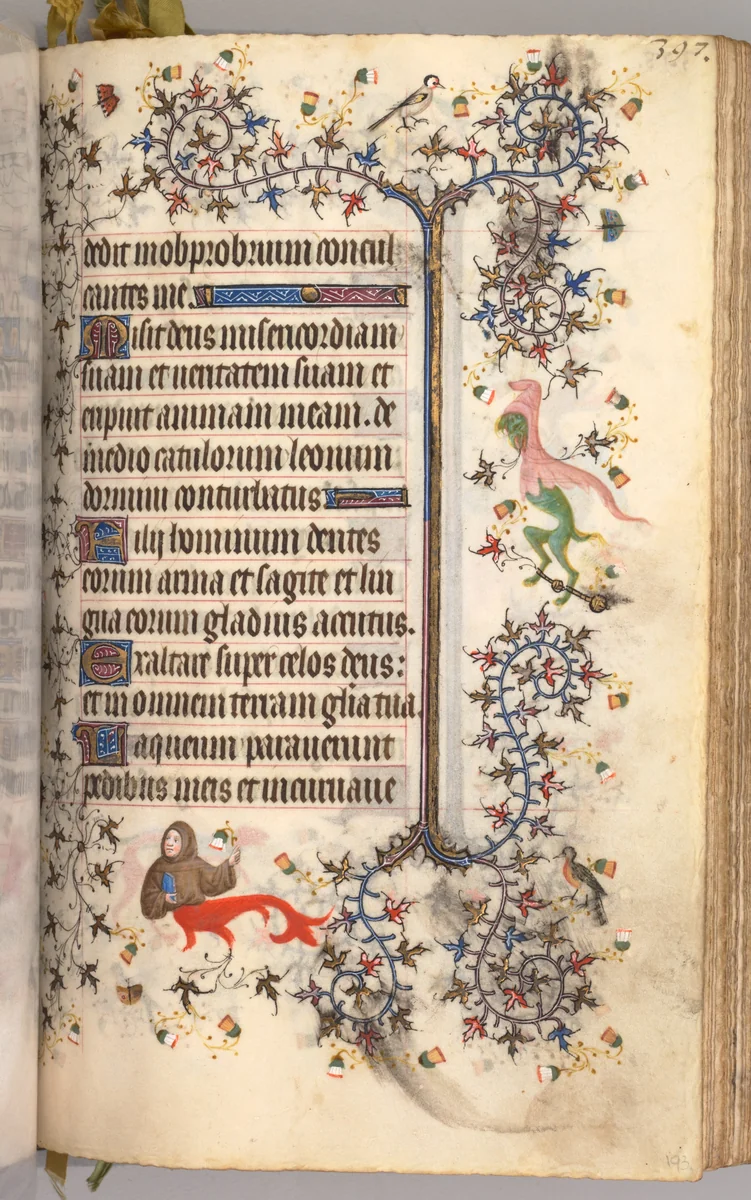 397.
dedit in obprobrium concul
cantes me.
Misit deus misericordiam
suam et ueritatem suam et
eripuit animam meam. de
medio catulorum leonum
dormiui conturbatus
Filij hominum dentes
eorum arma et sagite et lin
gua eorum gladius acutus.
Exaltare super celos deus:
et in omnem terram glia tua.
Laqueum parauerunt
pedibus meis et incuruaue
193